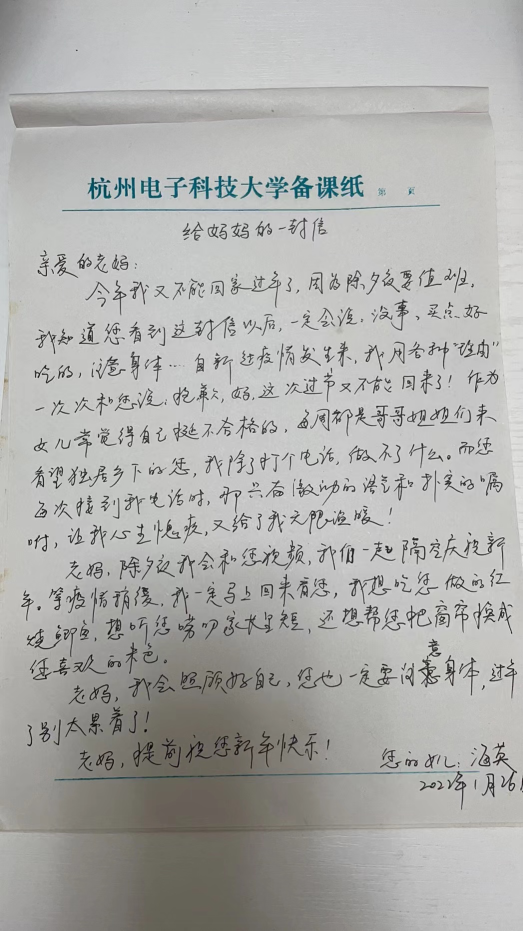 杭州电子科技大学备课纸 第 页
给妈妈的一封信
亲爱的老妈:
今年我又不能回家过年了,因为除夕夜要值班。
我知道您看到这封信以后,一定会说:没事、买点好
吃的,注意身体…自新冠疫情发生来,我用各种“理由”
一次次和您说:抱歉,妈,这次过节又不能回来了!作为
女儿常觉得自己挺不合格的,每周都是哥哥姐姐们来
看望独居乡下的您,我除了打个电话,做不了什么。而您
每次接到我电话时,那只有激动的语气和朴实的嘱
咐,让我心生愧疚,又给了我无限温暖!
老妈,除夕夜我会和您视频,我们一起隔空庆祝新
年。等疫情稍缓,我一定马上回来看您,我想吃您做的红
烧鲫鱼,想听您唠叨家长里短,还想帮您把窗帘换成
您喜欢的米色。
老妈,我会照顾好自己,您也一定要注意身体,过年
了别太累着了!
老妈,提前祝您新年快乐!
您的女儿:海英
2022年1月26日